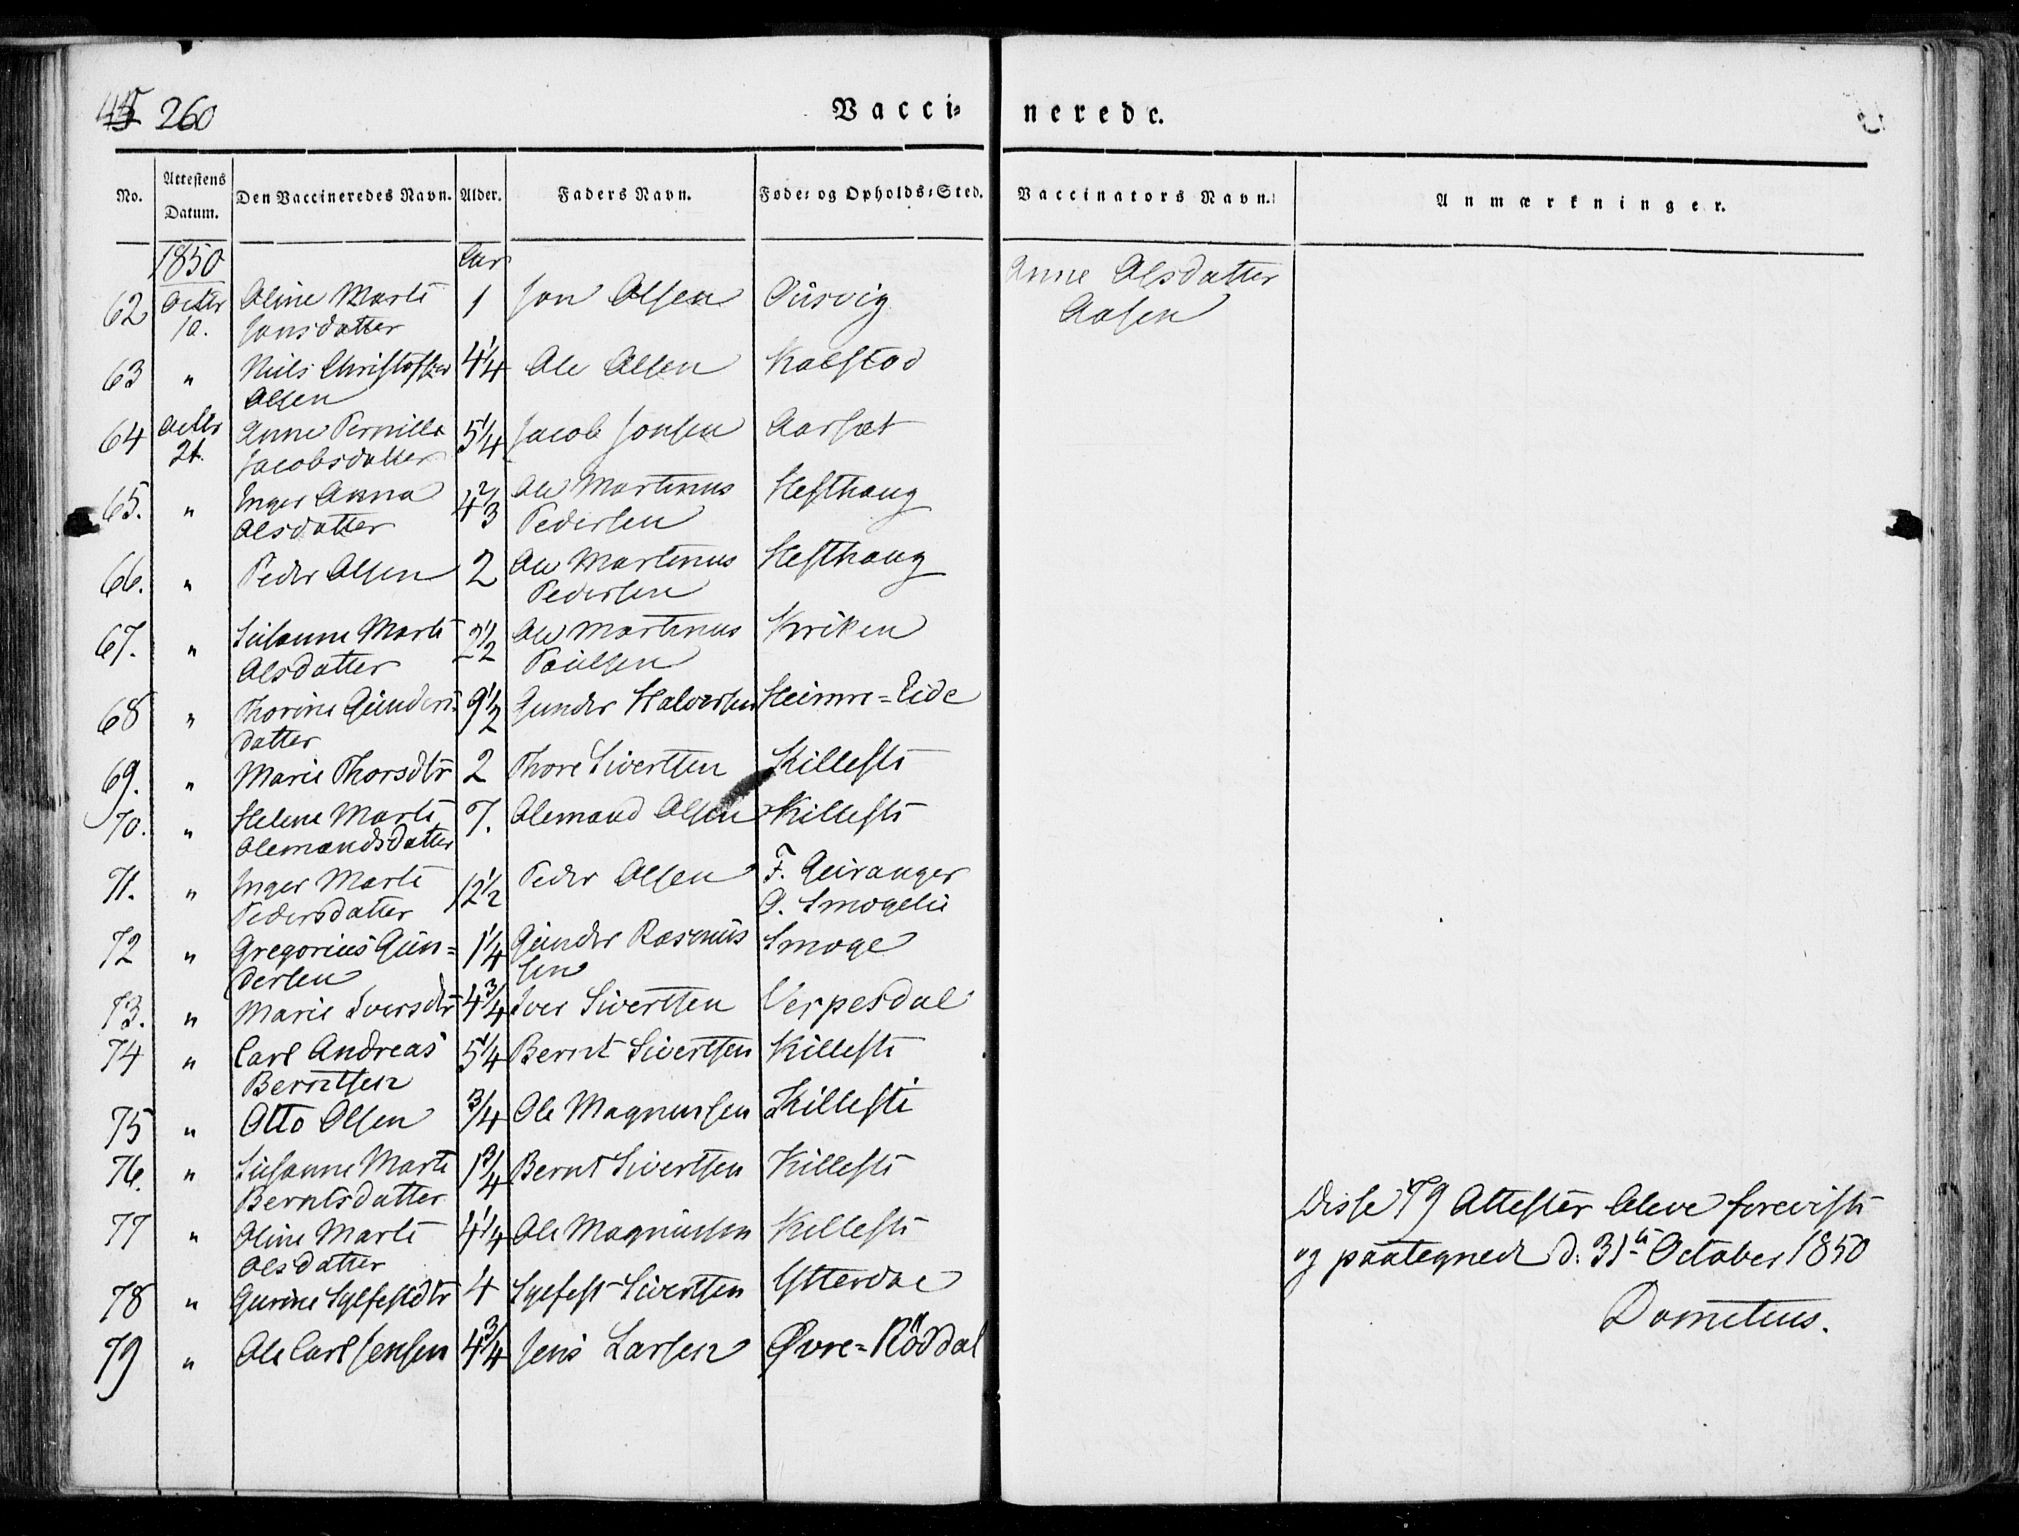 45 260
Vaccinerede.
No. Attestens Datum. Den Vaccineredes Navn. Alder. Faders Navn. Føde- og Opholds-Sted. Vaccinators Navn. Anmærkninger.
1850 Aar
62 Octbr 10. Oline Marte Jonsdatter 1 Jon Olsen Ousvig Anne Olsdatter Aasen
63 " Niels Christoffer Olsen 4 1/4 Ole Olsen Kalstad
64 Octbr 21. Anne Pernille Jacobsdatter 5 1/4 Jacob Jonsen Aarsæt
65. " Inger Anna Olsdatter 4 2/3 Ole Martinus Pedersen Hesthaug
66. " Peder Olsen 2 Ole Martinus Pedersen Hesthaug
67. " Susanne Marte Olsdatter 2 1/2 Ole Martinus Poulsen Kriken
68 " Thorine Gunders datter 9 1/2 Gunder Halvorsen Heimre-Eide
69. " Marie Thorsdtr 2 Thore Sivertsen Killesti
70. " Helene Marte Olemandsdatter 7. Olemand Olsen Killesti
71. " Inger Marte Pedersdatter 12 1/2 Peder Olsen F. Geiranger O. Smogelie
72 " Gregorius Gun= dersen 1 1/4 Gunder Rasmus sen Smoge
73. " Marie Iversdtr 4 3/4 Iver Sivertsen Verpesdal
74 " Carl Andreas Berntsen 5 1/4 Bernt Sivertsen Killesti
75 " Otto Olsen 3/4 Ole Magnussen Killesti
76. " Susanne Marte Berntsdatter 1 3/4 Bernt Sivertsen Killesti
77 " Oline Marte Olsdatter 4 1/4 Ole Magnussen Killesti
78 " Gurine Sylfestdtr 4 Sylfest Sivertsen Ytterdal
79 " Ole Carl Jensen 4 3/4 Jens Larsen Øvre-Röddal
Disse 79 Attester bleve foreviste
og paategned d: 31te October 1850